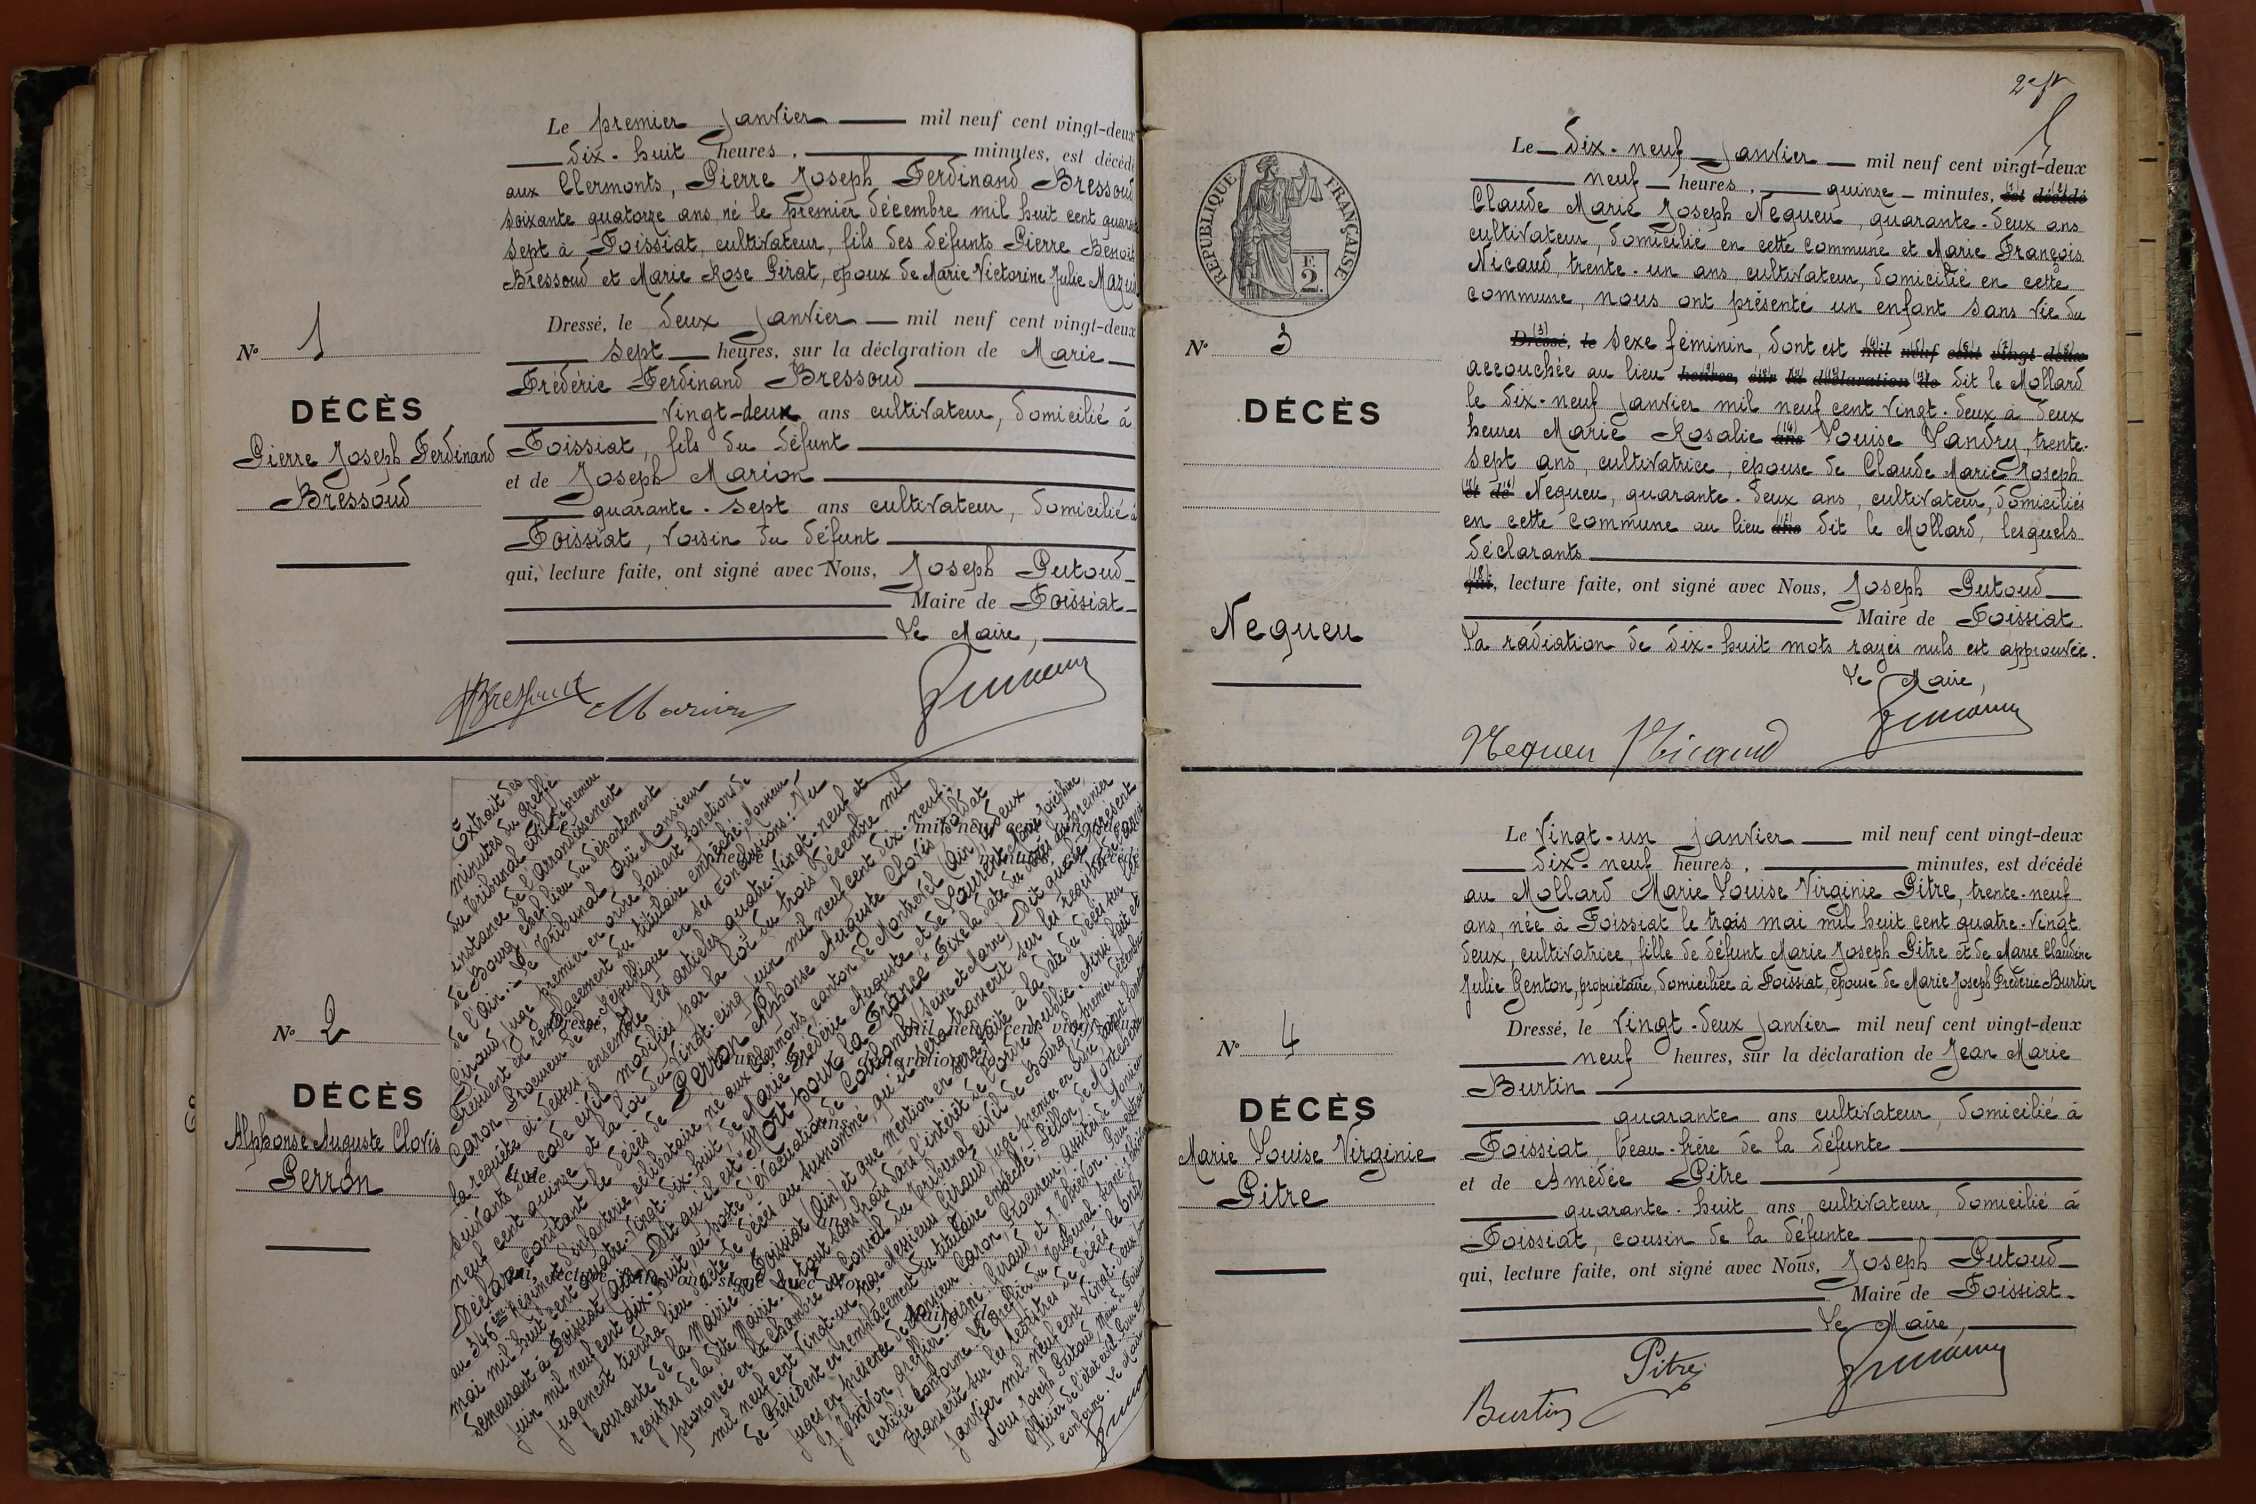 Le premier Janvier mil neuf cent vingt-deux
dix-huit heures, minutes, est décédé
aux Clermonts, Pierre Joseph Ferdinand Bressoud
soixante quatorze ans, né le premier décembre mil huit cent quarante
sept à Foissiat, cultivateur, fils des défunts Pierre Benoit
Bressoud et Marie Rose Pirat, époux de Marie Victorine Julie
Dressé, le deux Janvier mil neuf cent vingt-deux
sept heures, sur la déclaration de Marie
Frédéric Ferdinand Bressoud
vingt-deux ans cultivateur, domicilié à
Foissiat, fils du défunt
et de Joseph Marion
quarante-sept ans cultivateur, domicilié à
Foissiat, voisin du défunt
qui, lecture faite, ont signé avec Nous, Joseph Putoud
Maire de Foissiat
Le Maire,
Bressoud Marion
N° 1
DÉCÈS
Pierre Joseph Ferdinand
Bressoud
N° 2
DÉCÈS
Alphonse Auguste Clovis
Perron
Extrait des
minutes du greffe
du Tribunal civil de première
instance de l'arrondissement
de Bourg, chef-lieu du département
de l'Ain. Le Tribunal Ouï Monsieur
Giraud, juge premier en ordre faisant fonctions de
Président en remplacement du titulaire empêché; Monsieur
Caron, Procureur de la République en ses conclusions: Vu
la requête ci-dessus, ensemble les articles quatre-vingt-neuf et
suivants du code civil modifiés par la loi du trois décembre mil
neuf cent quinze et la loi du vingt-cinq juin mil neuf cent dix-neuf.
Déclare constant le décès de Perron Alphonse Auguste Clovis soldat
au 346ème Régiment d'infanterie, célibataire, né aux Clermonts canton de Montrevel (Ain) le deux
mai mil huit cent quatre-vingt-dix-huit, de Marie Frédéric Auguste et de Laurent Marie Joséphine,
demeurant à Foissiat (Ain) Dit qu'il est "Mort pour la France" Fixe la date du décès au premier
juin mil neuf cent dix-huit, au poste d'évacuation de Coulombs (Seine et Marne) Dit que le présent
jugement tiendra lieu d'acte de décès au susnommé, qu'il sera transcrit sur les registres de l'année
courante de la Mairie de Foissiat (Ain) et que mention en sera faite à la date du décès sur les
registres de la dite Mairie. Le tout sans frais dans l'intérêt de l'ordre public. Ainsi fait et
prononcé en la chambre du Conseil du Tribunal civil de Bourg, le premier décembre
mil neuf cent vingt-un par Messieurs Giraud, juge premier en ordre, faisant fonctions
de Président en remplacement du titulaire empêché;
juges, en présence de Monsieur Caron, Procureur, assistés de Monsieur
greffier. Signé: Giraud, et
certifié conforme. Le Greffier du Tribunal. Signé:
Transcrit sur les registres de décès le onze
Janvier mil neuf cent vingt-deux par
Nous Joseph Putoud, Maire de Foissiat
Officier de l'état civil.
conforme. Le Maire
RÉPUBLIQUE FRANÇAISE
F.
2.
Le dix-neuf Janvier mil neuf cent vingt-deux
neuf heures, quinze minutes, est décédé
Claude Marie Joseph Nequeu, quarante-deux ans
cultivateur, domicilié en cette commune et Marie François
Nicaud, trente-un ans, cultivateur, domicilié en cette
commune, nous ont présenté un enfant sans vie du
Dressé, le sexe féminin, dont est mil neuf cent vingt-deux
accouchée au lieu heures, sur la déclaration de dit le Mollard
le dix-neuf Janvier mil neuf cent vingt-deux à deux
heures Marie Rosalie ans Louise Vandry, trente-
sept ans, cultivatrice, épouse de Claude Marie Joseph
et de Nequeu, quarante-deux ans, cultivateur, domiciliés
en cette commune au lieu ans dit le Mollard, lesquels
déclarants
qui, lecture faite, ont signé avec Nous, Joseph Putoud
Maire de Foissiat
La radiation de dix-huit mots rayés nuls est approuvée.
Le Maire,
Nequeu Nicaud
N° 3
DÉCÈS
Nequeu
Le vingt-un Janvier mil neuf cent vingt-deux
dix-neuf heures, minutes, est décédé
au Mollard Marie Louise Virginie Pitre, trente-neuf
ans, née à Foissiat le trois mai mil huit cent quatre-vingt
deux, cultivatrice, fille de défunt Marie Joseph Pitre et de Marie Claudine
Julie Genton, propriétaire, domiciliée à Foissiat, épouse de Marie Joseph Frédéric Burtin
Dressé, le vingt-deux Janvier mil neuf cent vingt-deux
neuf heures, sur la déclaration de Jean Marie
Burtin
quarante ans cultivateur, domicilié à
Foissiat, beau-frère de la défunte
et de Amédée Pitre
quarante-huit ans cultivateur, domicilié à
Foissiat, cousin de la défunte
qui, lecture faite, ont signé avec Nous, Joseph Putoud
Maire de Foissiat
Le Maire,
Pitre
Burtin
N° 4
DÉCÈS
Marie Louise Virginie
Pitre